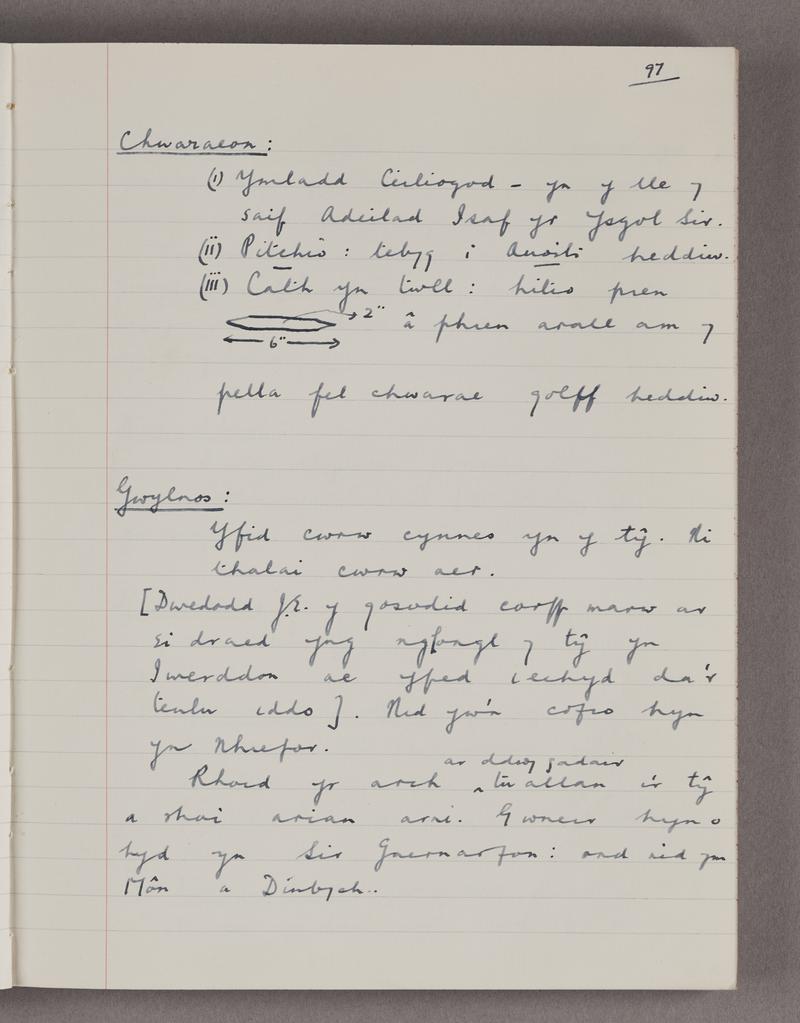 97
Chwaraeon:
(i) Ymladd Ceiliogod - yn y lle y
saif Adeilad Isaf yr Ysgol Sir.
(ii) Pitchio: tebyg i Quoits heddiw.
(iii) Cath yn twll: hitio pren
2" â phren arall am y
6"
pella fel chwarae golff heddiw.
Gwylnos:
Yfid cwrw cynnes yn y tŷ. Ni
thalai cwrw oer.
[Dwedodd J.E. y gosodid corff marw ar
ei draed yng nghongl y tŷ yn
Iwerddon ac yfed iechyd da'r
teulu iddo]. Nid yw'n cofio hyn
yn Nhrefor.
ar ddwy gadair
Rhoid yr arch ‸ tu allan i'r tŷ
a rhoi arian arni. Gwneir hyn o
hyd yn Sir Gaernarfon: ond nid ym
Môn a Dinbych..